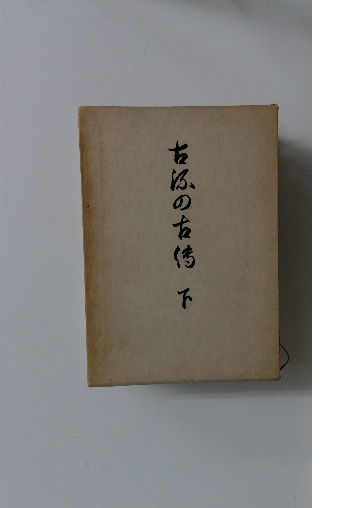 古源の古傳 下